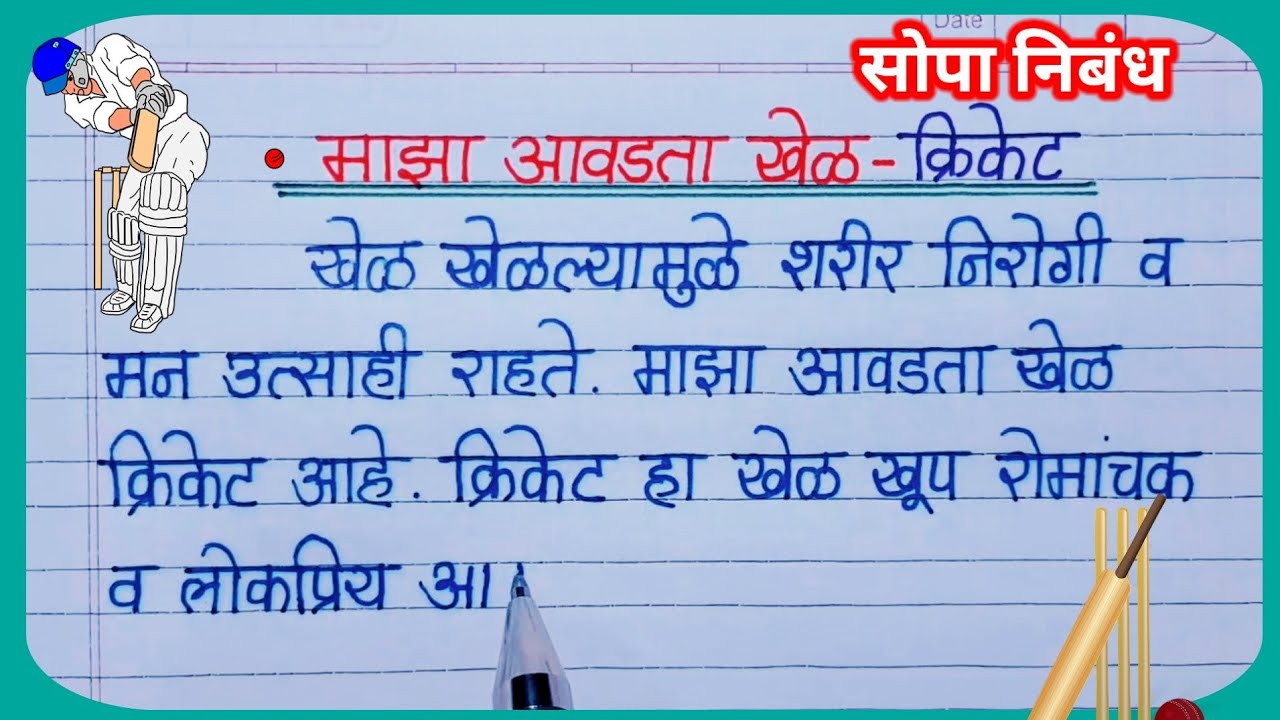 Date
सोपा निबंध
माझा आवडता खेळ - क्रिकेट
खेळ खेळल्यामुळे शरीर निरोगी व
मन उत्साही राहते. माझा आवडता खेळ
क्रिकेट आहे. क्रिकेट हा खेळ खूप रोमांचक
व लोकप्रिय आ